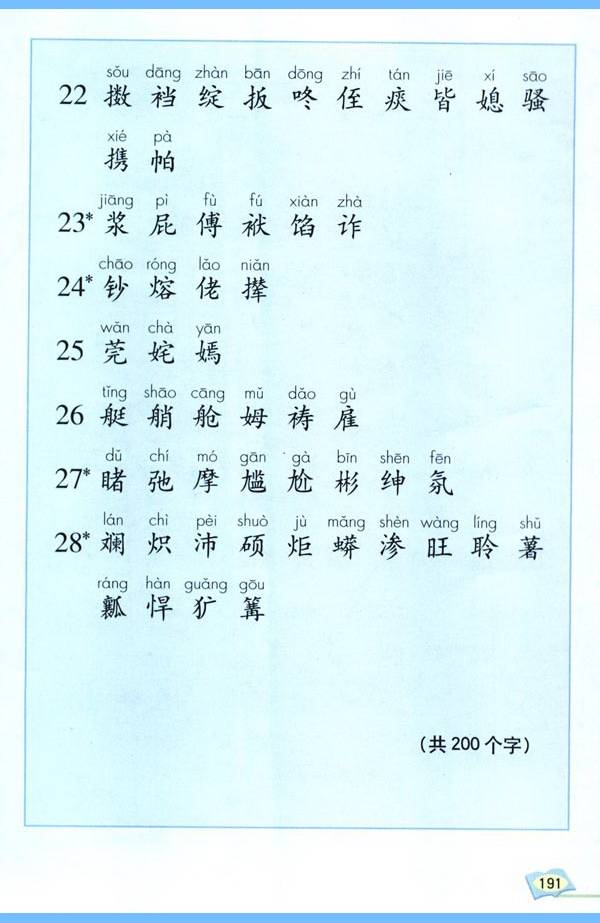 sǒu dāng zhàn bān dōng zhí tán jiē xí sāo
22 擞 裆 绽 扳 咚 侄 痰 皆 媳 骚
xié pà
携 帕
jiāng pì fù fú xiàn zhà
23* 浆 屁 傅 袱 馅 诈
chāo róng lǎo niǎn
24* 钞 熔 佬 撵
wǎn chà yān
25 莞 姹 嫣
tǐng shāo cāng mǔ dǎo gù
26 艇 艄 舱 姆 祷 雇
dǔ chí mó gān gà bīn shēn fēn
27* 睹 弛 摩 尴 尬 彬 绅 氛
lán chì pèi shuò jù mǎng shèn wàng líng shǔ
28* 斓 炽 沛 硕 炬 蟒 渗 旺 聆 薯
ráng hàn guǎng gōu
瓤 悍 犷 篝
（共 200 个字）
191